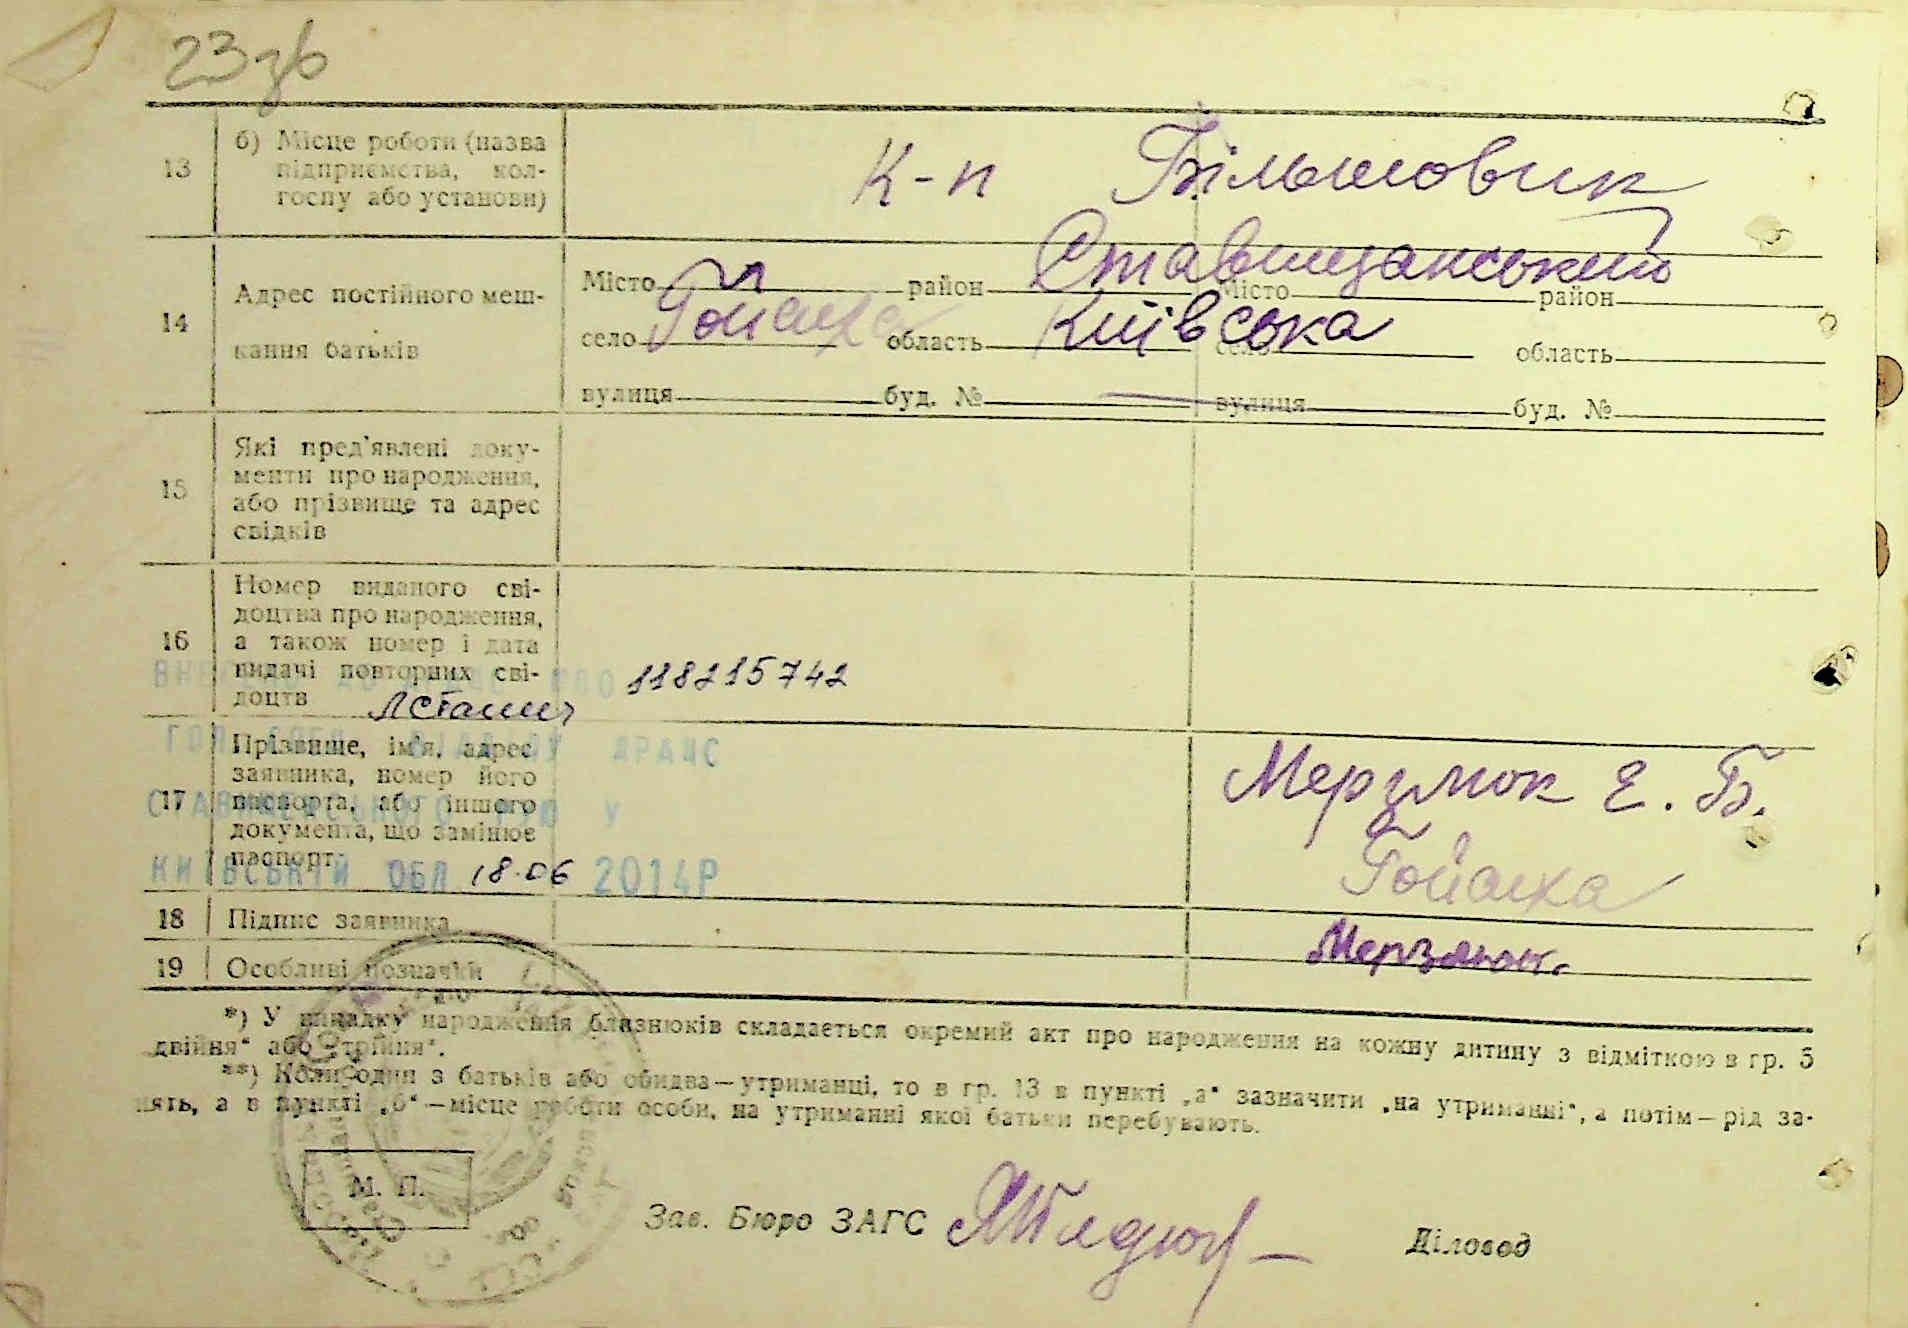 23зв
13 б) Місце роботи (назва підприємства, колгоспу або установи) К-п Більшовик
14 Адрес постійного мешкання батьків
Місто район Ставищанський Місто район
село Гойсиха область Київська село область
вулиця буд. № — вулиця буд. №
15 Які пред'явлені документи про народження, або прізвище та адрес свідків
16 Номер виданого свідоцтва про народження, а також номер і дата видачі повторних свідоцтв 118215742
17 Прізвище, ім'я, адрес заявника, номер його паспорта, або іншого документа, що замінює паспорт Мерзлюк Є. Б.
Гойсиха
КИЇВСЬКІЙ ОБЛ 18.06 2014Р
18 Підпис заявника Мерзлюк.
19 Особливі позначки
*) У випадку народження близнюків складається окремий акт про народження на кожну дитину з відміткою в гр. 5
„двійня“ або „трійня“.
**) Коли один з батьків або обидва—утриманці, то в гр. 13 в пункті „а“ зазначити „на утриманні“, а потім—рід за-
нять, а в пункті „б“—місце роботи особи, на утриманні якої батьки перебувають.
М. П.
Зав. Бюро ЗАГС Діловод